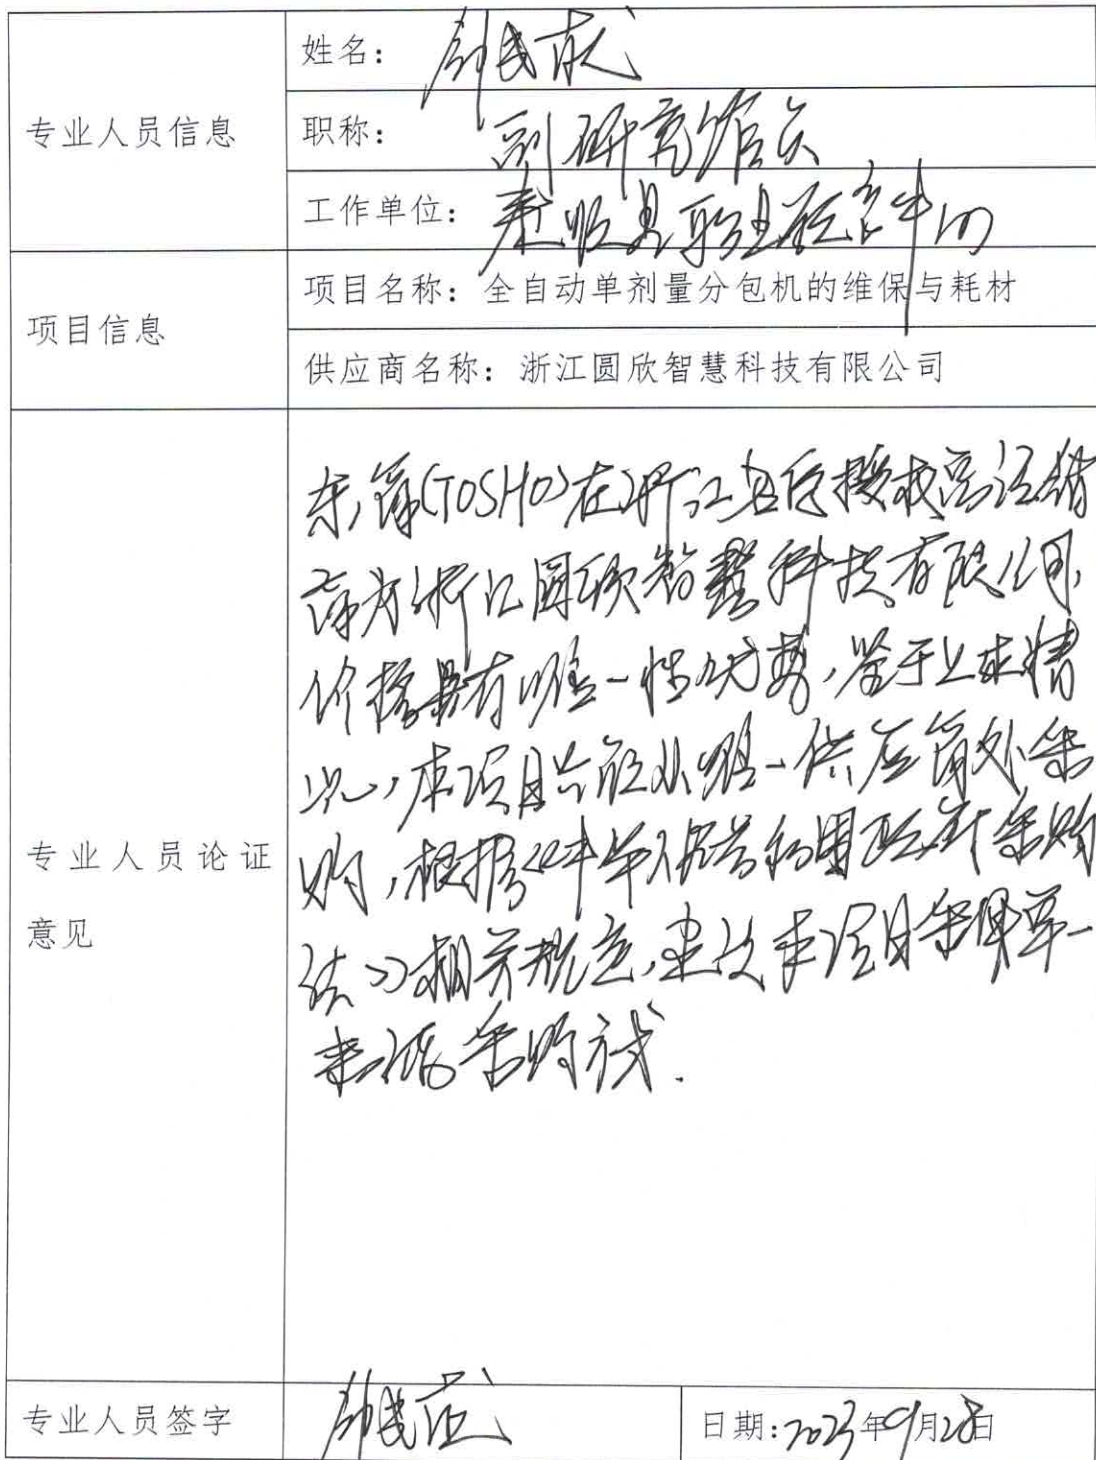 姓名：
专业人员信息
职称：副研究馆员
工作单位：泰顺县职业教育中心
项目信息
项目名称：全自动单剂量分包机的维保与耗材
供应商名称：浙江圆欣智慧科技有限公司
东商(TOSHO)在浙江省唯一授权总经销
商为浙江圆欣智慧科技有限公司,
价格具有唯一性优势,鉴于上述情
况,本项目只能从唯一供应商处采
购,根据《中华人民共和国政府采购
法》相关规定,建议本项目采用单一
来源采购方式.
专业人员论证
意见
专业人员签字
日期:2023年9月28日